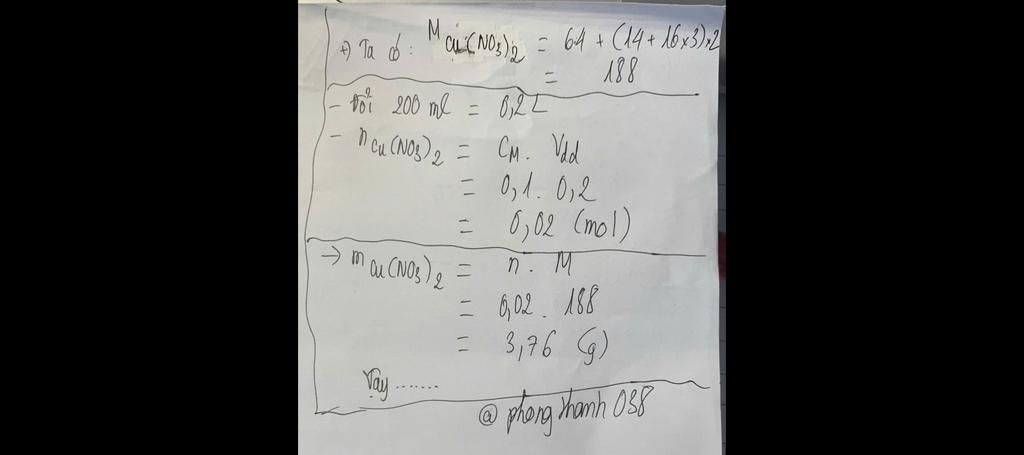 +) Ta có: M Cu(NO3)2 = 64 + (14 + 16x3)x2
= 188
- Đổi 200 ml = 0,2L
- n Cu(NO3)2 = CM. Vdd
= 0,1. 0,2
= 0,02 (mol)
→ m Cu(NO3)2 = n. M
= 0,02. 188
= 3,76 (g)
Vậy .......
@ phongthanh 038